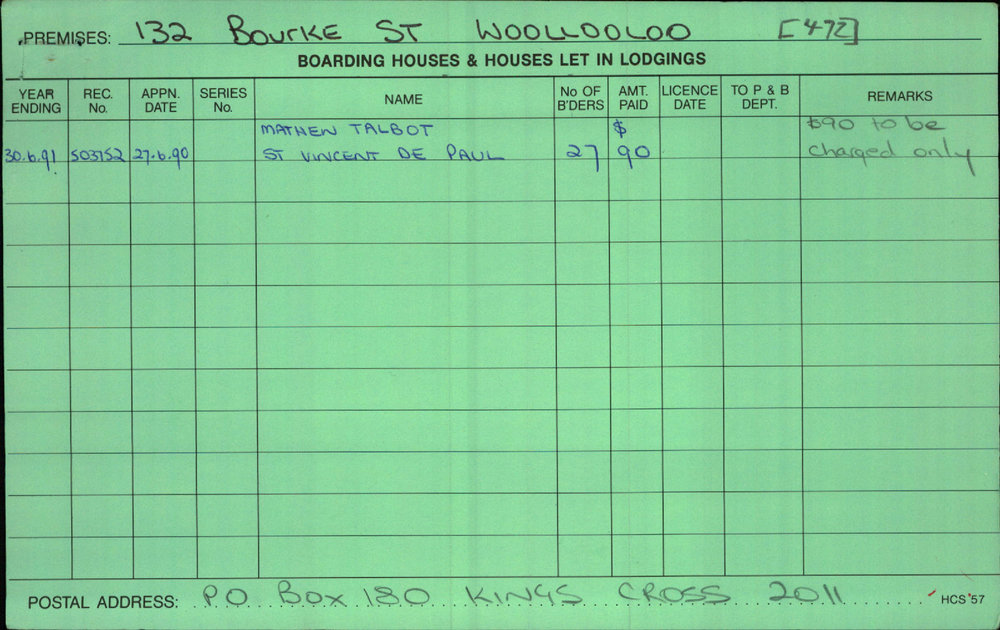 PREMISES: 132 BOURKE ST WOOLLOOLOO [472]
BOARDING HOUSES & HOUSES LET IN LODGINGS
YEAR ENDING REC. No. APPN. DATE SERIES No. NAME No OF B'DERS AMT. PAID LICENCE DATE TO P & B DEPT. REMARKS
MATHEW TALBOT $ $90 to be
30.6.91 503752 27.6.90 ST VINCENT DE PAUL 27 90 charged only
POSTAL ADDRESS: PO BOX 180 KINGS CROSS 2011 HCS 57